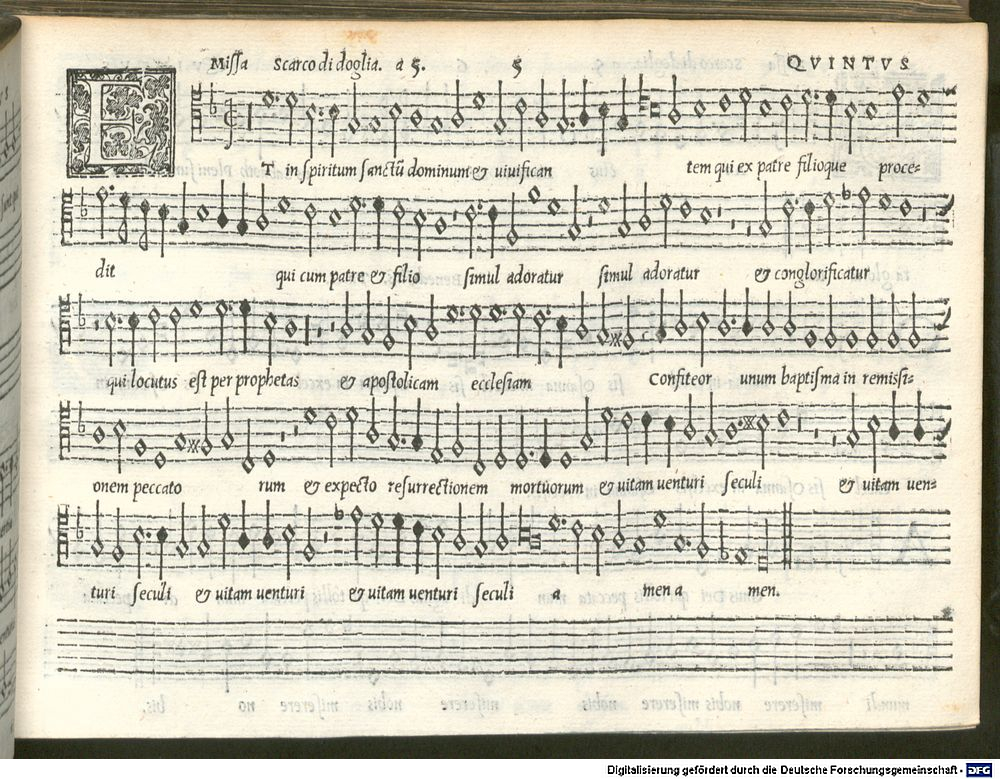 Missa Scarco di doglia. a 5. 5 QVINTVS
ET in spiritum sanctũ dominum & viuifican tem qui ex patre filioque proce-
dit qui cum patre & filio simul adoratur simul adoratur & conglorificatur
qui locutus est per prophetas & apostolicam ecclesiam Confiteor unum baptisma in remissi-
onem peccato rum & expecto resurrectionem mortuorum & uitam uenturi seculi & uitam uen-
turi seculi & uitam uenturi & uitam uenturi seculi a men a men.
Digitalisierung gefördert durch die Deutsche Forschungsgemeinschaft - DFG